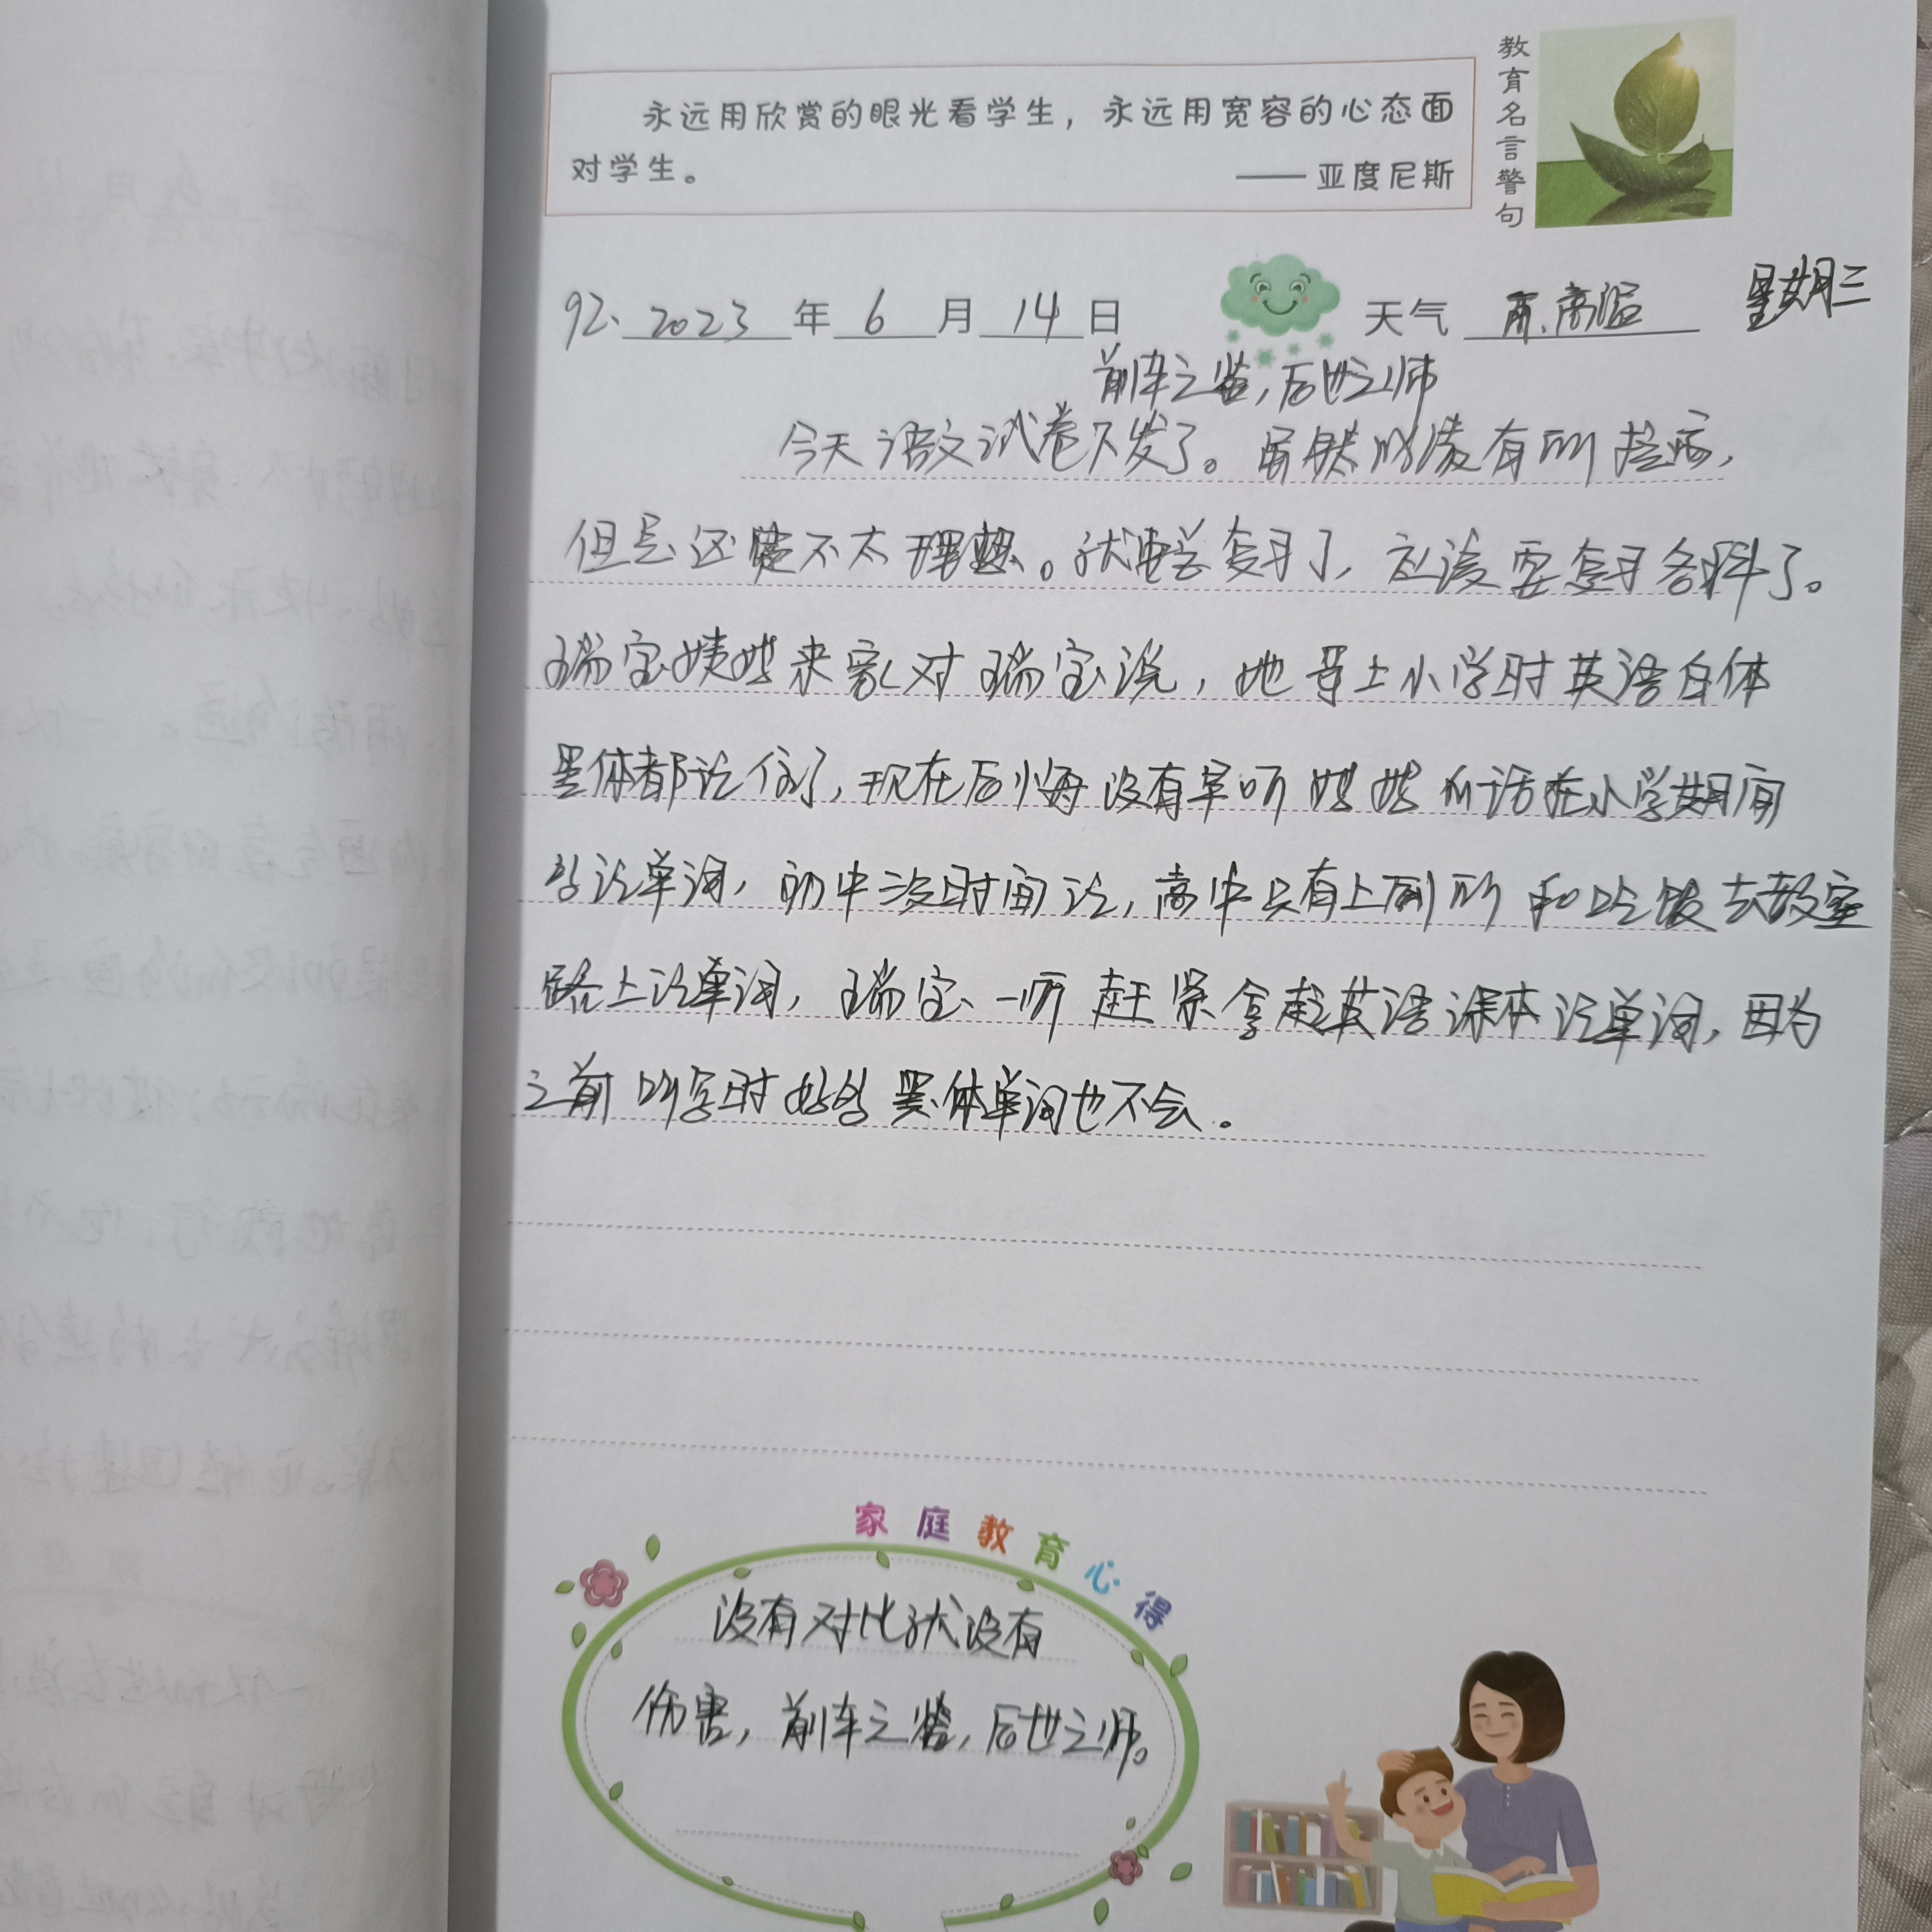 永远用欣赏的眼光看学生，永远用宽容的心态面
对学生。
——亚度尼斯
教育名言警句
92、2023年6月14日 天气 雨、高温 星期三
前车之鉴，后世之师
今天语文试卷下发了。虽然成绩有所提高，
但是还是不太理想。就要总复习了，应该要复习各科了。
瑞宝姨姥来家对瑞宝说，她哥上小学时英语白体
黑体都记住了，现在后悔没有早听姥姥的话在小学期间
多记单词，初中没时间记，高中只有上厕所和吃饭去教室
路上记单词，瑞宝一听赶紧拿起英语课本记单词，因为
之前听写时好多黑体单词也不会。
家庭教育心得
没有对比就没有
伤害，前车之鉴，后世之师。